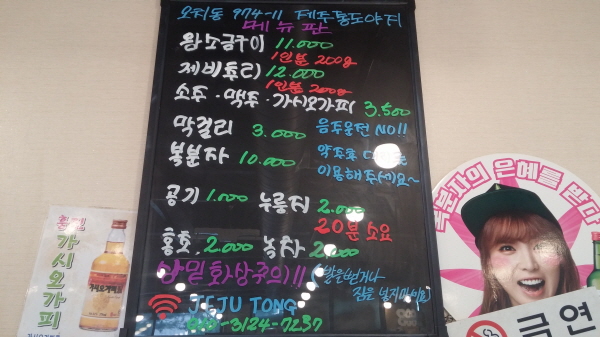 오귀동 974-11 제주통도야지
메뉴판
왕소금구이 11.000
1인분 200g
제비추리 12.000
1인분 200g
소주·맥주·가시오가피 3.500
막걸리 3.000 음주운전 NO!!
복분자 10.000 약주후
이용해주세요~
공기 1.000 누룽지 2.000
20분 소요
홍초 2.000 녹차 2.000
불밑화상주의!!
짐을 넣지마세요
JEJU TONG
3124-7237
가시오가피
복분자의 은혜를 받다
금연